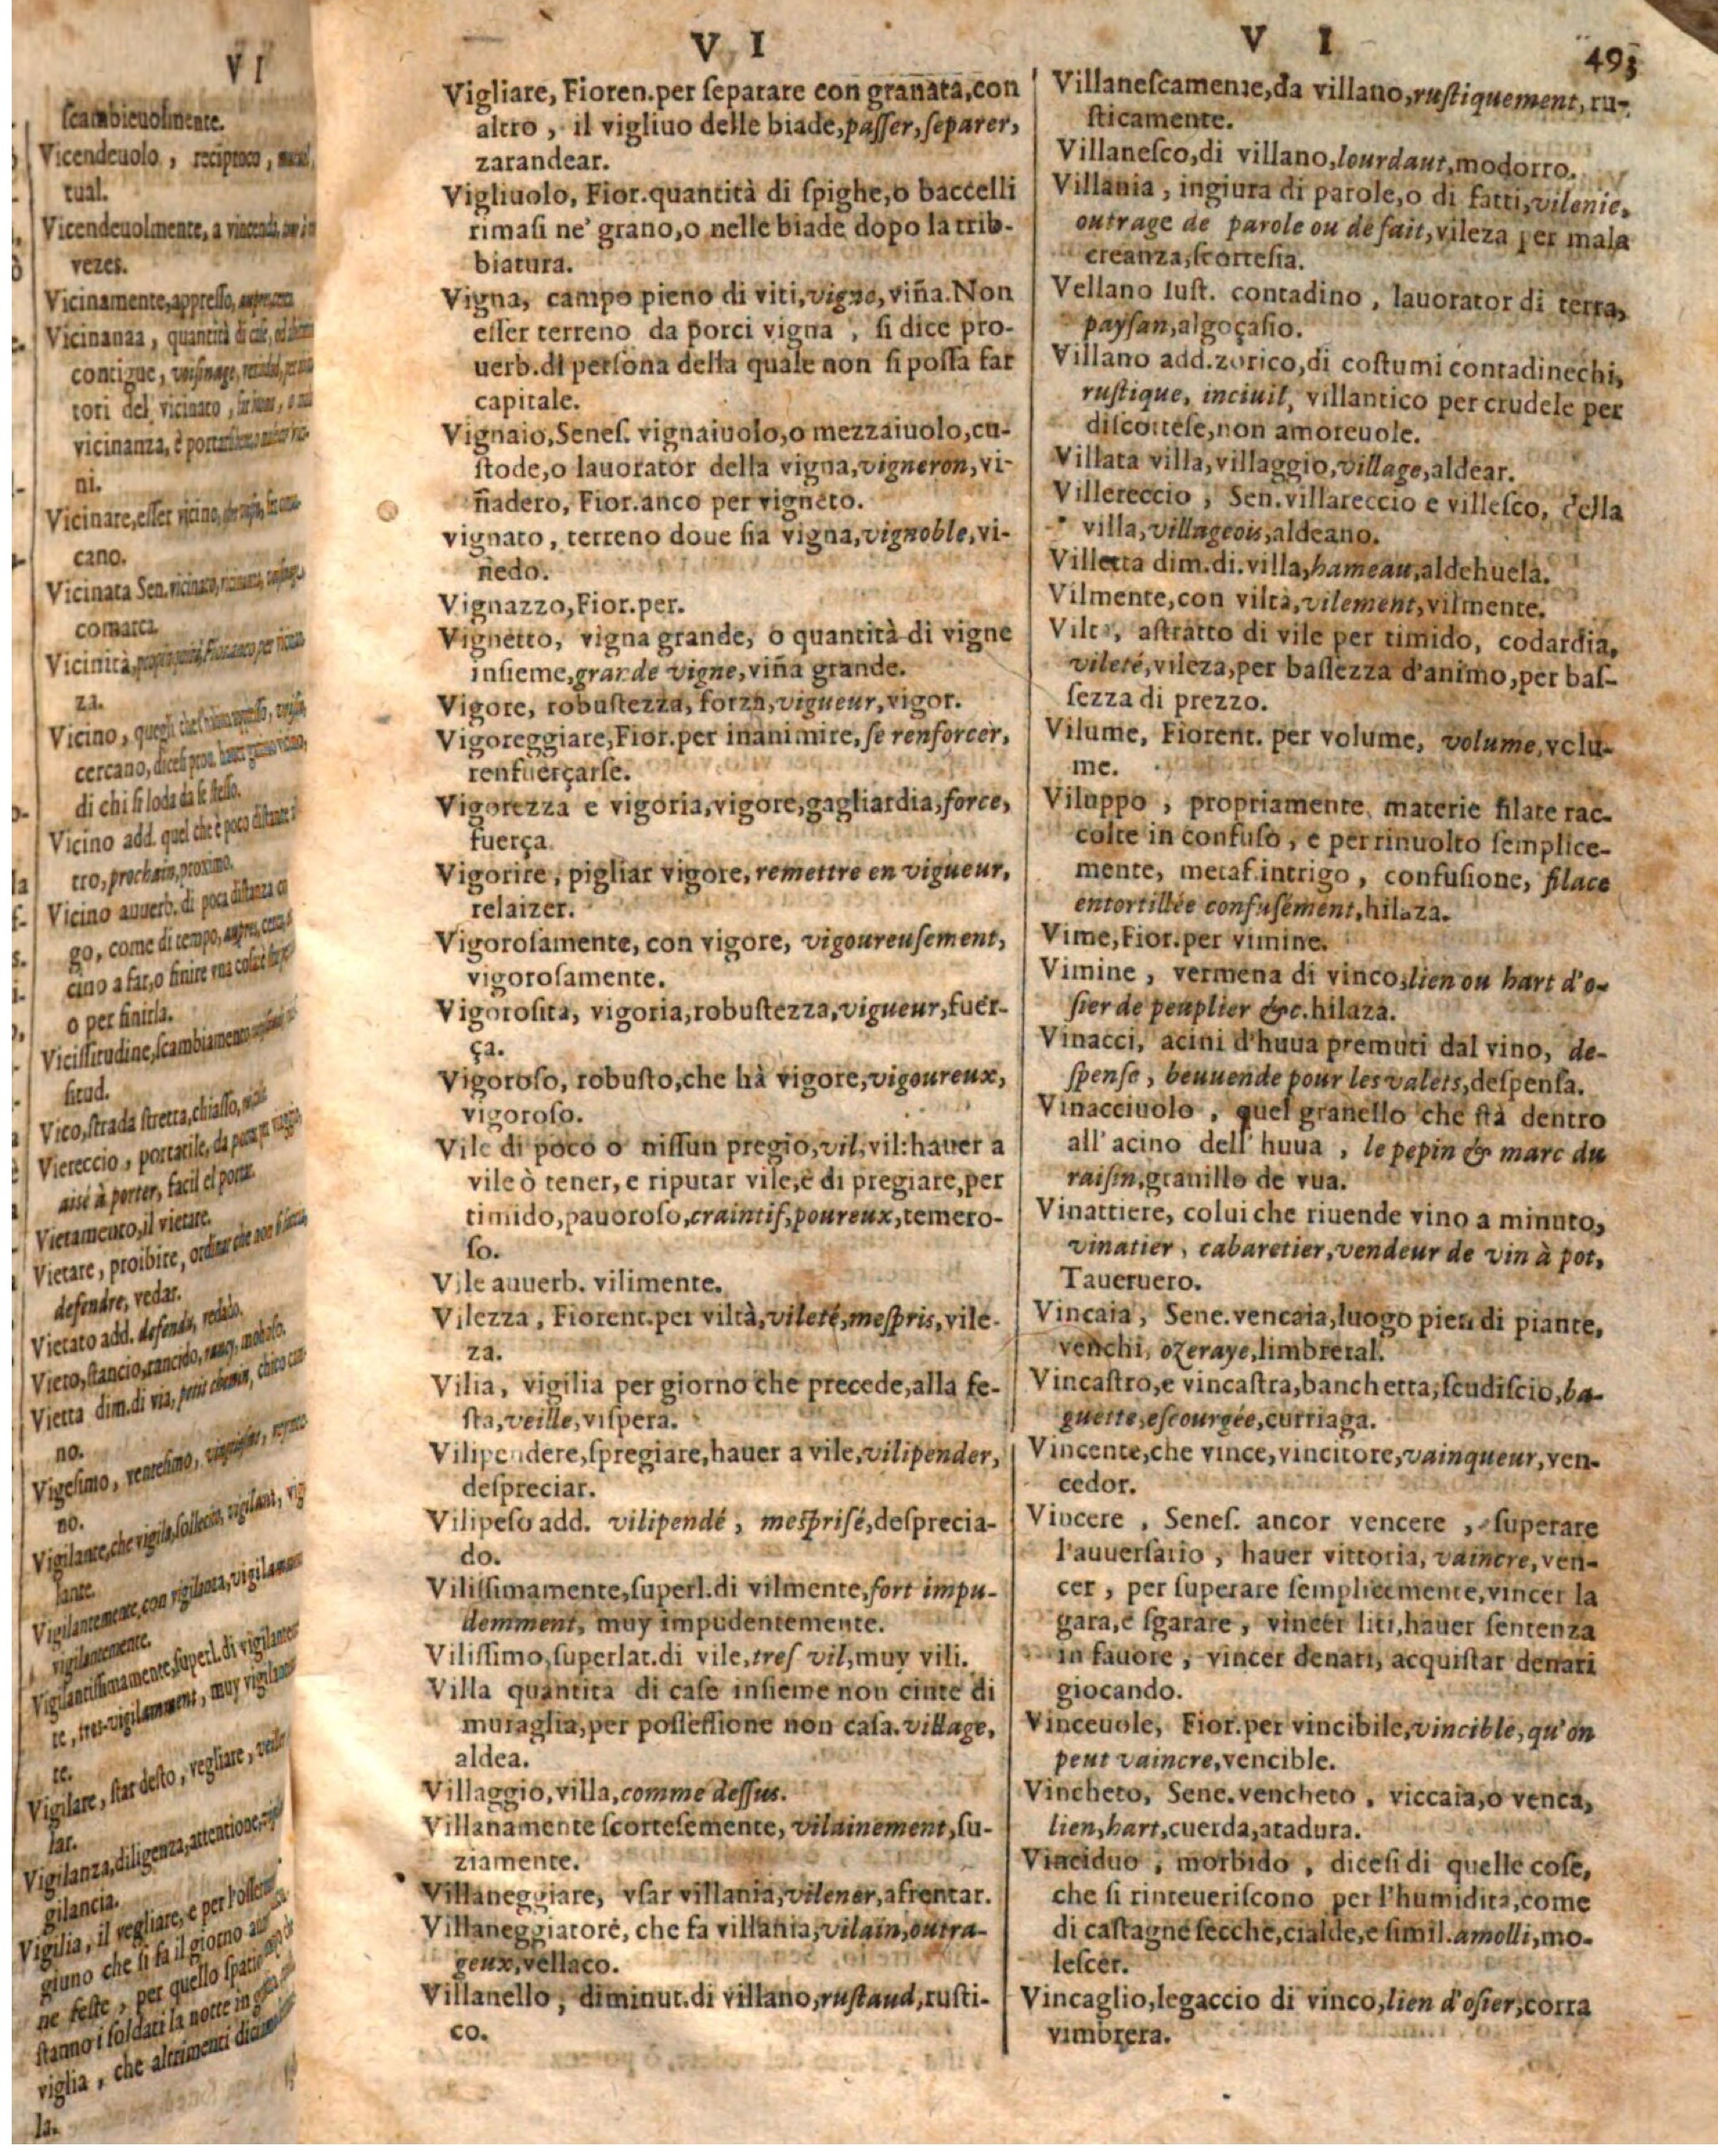 V I
ſcambieuolmente.
Vicendeuolo, reciproco,
tual.
Vicendeuolmente, a vincenda,
vezes.
Vicinamente, appreſſo,
Vicinanaa, quantità di caſe,
contigue, voiſinage,
tori del vicinato,
vicinanza, è
ni.
Vicinare, eſſer vicino,
cano.
Vicinata Sen. vicinato,
comarca
Vicinità,
za.
Vicino, quegli
cercano,
di chi ſi loda da ſe ſteſſo.
Vicino add. quel che è poco diſtante
tro, prochain, proximo.
Vicino auuerb. di poca diſtanza
go, come di tempo,
cino a far, o finire vna coſa
o per finirla.
Viciſſitudine, ſcambiamento
ſitud.
Vico, ſtrada ſtretta, chiaſſo,
Viereccio, portatile, da
aisé à porter, facil
Vietamento, il vietare.
Vietare, proibire, ordinar che non
defendre, vedar.
Vietato add. defendu, vedado.
Vieto, ſtancio, rancido,
Vietta dim. di via, petit chemin,
no.
Vigeſimo, venteſimo,
no.
Vigilante, che vigila, ſollecito, vigilant, vigi
lante.
Vigilantemente, con vigilanza,
vigilantemente.
Vigilantiſſimamente, ſuperl. di vigilantemen
te, tres-vigilamment, muy vigilante
te.
Vigilare, ſtar deſto, vegliare,
lar.
Vigilanza, diligenza, attentione,
gilancia.
Vigilia, il vegliare, e per
giuno che ſi fa il giorno
ne feſte, per quello ſpatio
ſtanno i ſoldati la notte in
viglia, che altrimenti
la.
V I
Vigliare, Fioren.per ſeparare con granata,con
altro, il vigliuo delle biade,paſſer,ſeparer,
zarandear.
Vigliuolo, Fior.quantità di ſpighe,o baccelli
rimaſi ne' grano,o nelle biade dopo la trib-
biatura.
Vigna, campo pieno di viti,vigne,viña.Non
eſſer terreno da porci vigna, ſi dice pro-
uerb.di perſona della quale non ſi poſſa far
capitale.
Vignaio,Seneſ. vignaiuolo,o mezzaiuolo,cu-
ſtode,o lauorator della vigna,vigneron,vi-
ñadero, Fior.anco per vigneto.
vignato, terreno doue ſia vigna,vignoble,vi-
ñedo.
Vignazzo,Fior.per.
Vignetto, vigna grande, o quantità di vigne
inſieme,grande vigne,viña grande.
Vigore, robuſtezza, forza,vigueur,vigor.
Vigoreggiare,Fior.per inanimire,ſe renforcer,
renfuerçarſe.
Vigorezza e vigoria,vigore,gagliardia,force,
fuerça
Vigorire, pigliar vigore, remettre en vigueur,
relaizer.
Vigoroſamente, con vigore, vigoureuſement,
vigoroſamente.
Vigoroſità, vigoria,robuſtezza,vigueur,fuer-
ça.
Vigoroſo, robuſto,che hà vigore,vigoureux,
vigoroſo.
Vile di poco o niſſun pregio,vil,vil:hauer a
vile ò tener, e riputar vile,è di pregiare,per
timido,pauoroſo,craintif,poureux,temero-
ſo.
Vile auuerb. vilimente.
Vilezza, Fiorent.per viltà,vileté,meſpris,vile-
za.
Vilia, vigilia per giorno che precede,alla fe-
ſta,veille,viſpera.
Vilipendere,ſpregiare,hauer a vile,vilipender,
deſpreciar.
Vilipeſo add. vilipendé, meſpriſé,deſprecia-
do.
Viliſſimamente,ſuperl.di vilmente,fort impu-
demment, muy impudentemente.
Viliſſimo,ſuperlat.di vile,treſ vil,muy vili.
Villa quantità di caſe inſieme non cinte di
muraglia,per poſſeſſione non caſa.village,
aldea.
Villaggio,villa,comme deſſus.
Villanamente ſcorteſemente, vilainement,ſu-
ziamente.
Villaneggiare, vſar villania,vilener,afrentar.
Villaneggiatore, che fa villania,vilain,outra-
geux,vellaco.
Villanello, diminut.di villano,ruſtaud,ruſti-
co.
V I
493
Villaneſcamente,da villano,ruſtiquement,ru-
ſticamente.
Villaneſco,di villano,lourdaut,modorro.
Villania, ingiura di parole,o di fatti,vilenie,
outrage de parole ou de fait,vileza per mala
creanza,ſcorteſia.
Vellano ſuſt. contadino, lauorator di terra,
payſan,algoçaſio.
Villano add.zorico,di coſtumi contadinechi,
ruſtique, inciuil, villantico per crudele per
diſcorteſe,non amoreuole.
Villata villa,villaggio,village,aldear.
Villereccio, Sen.villareccio e villeſco, della
villa,villageois,aldeano.
Villetta dim.di.villa,hameau,aldehuela.
Vilmente,con viltà,vilement,vilmente.
Viltà, aſtratto di vile per timido, codardia,
vileté,vileza,per baſſezza d'animo,per baſ-
ſezza di prezzo.
Vilume, Fiorent. per volume, volume,volu-
me.
Viluppo, propriamente materie filate rac-
colte in confuſo, e per rinuolto ſemplice-
mente, metaf.intrigo, confuſione, filace
entortillée confuſément,hilaza.
Vime,Fior.per vimine.
Vimine, vermena di vinco,lien ou hart d'o-
ſier de peuplier &c.hilaza.
Vinacci, acini d'huua premuti dal vino, de-
ſpenſe, beuuende pour les valets,deſpenſa.
Vinacciuolo, quel granello che ſtà dentro
all' acino dell' huua, le pepin & marc du
raiſin,granillo de vua.
Vinattiere, colui che riuende vino a minuto,
vinatier, cabaretier,vendeur de vin à pot,
Taueruero.
Vincaia, Sene.vencaia,luogo pien di piante,
venchi, ozeraye,limbreral.
Vincaſtro,e vincaſtra,banchetta,ſcudiſcio,ba-
guette,eſcourgée,curriaga.
Vincente,che vince,vincitore,vainqueur,ven-
cedor.
Vincere, Seneſ. ancor vencere, ſuperare
l'auuerſario, hauer vittoria, vaincre,ven-
cer, per ſuperare ſemplicemente,vincer la
gara,e ſgarare, vincer liti,hauer ſentenza
in fauore, vincer denari, acquiſtar denari
giocando.
Vinceuole, Fior.per vincibile,vincible,qu'on
peut vaincre,vencible.
Vincheto, Sene.vencheto, viccaia,o venca,
lien,hart,cuerda,atadura.
Vinciduo, morbido, diceſi di quelle coſe,
che ſi rinteueriſcono per l'humidità,come
di caſtagne ſecche,cialde,e ſimil.amolli,mo-
leſcer.
Vincaglio,legaccio di vinco,lien d'oſier,corra
vimbrera.